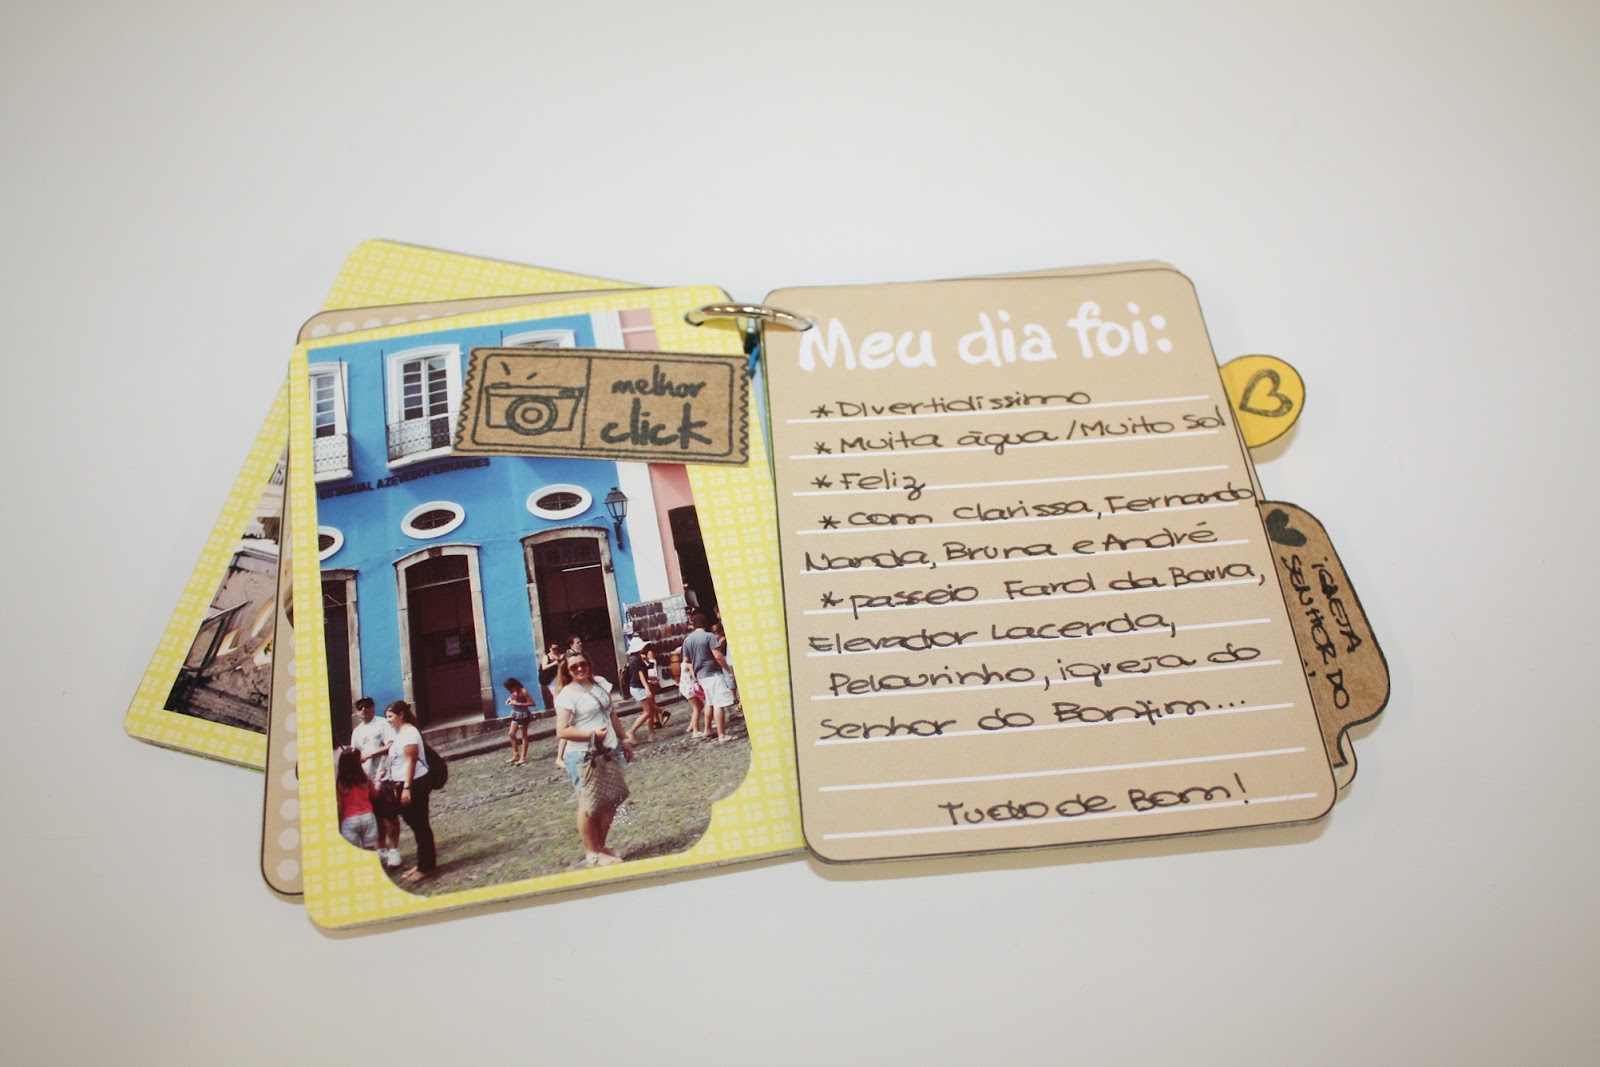 melhor
click
ESTADUAL AZEVEDO FERNANDES
Meu dia foi:
* Divertidíssimo
* Muita água / Muito Sol
* Feliz
* com Clarissa, Fernando,
Nanda, Bruna e André
* passeio Farol da Barra,
Elevador Lacerda,
Pelourinho, igreja do
Senhor do Bonfim...
Tudo de Bom!
IGREJA
SENHOR DO